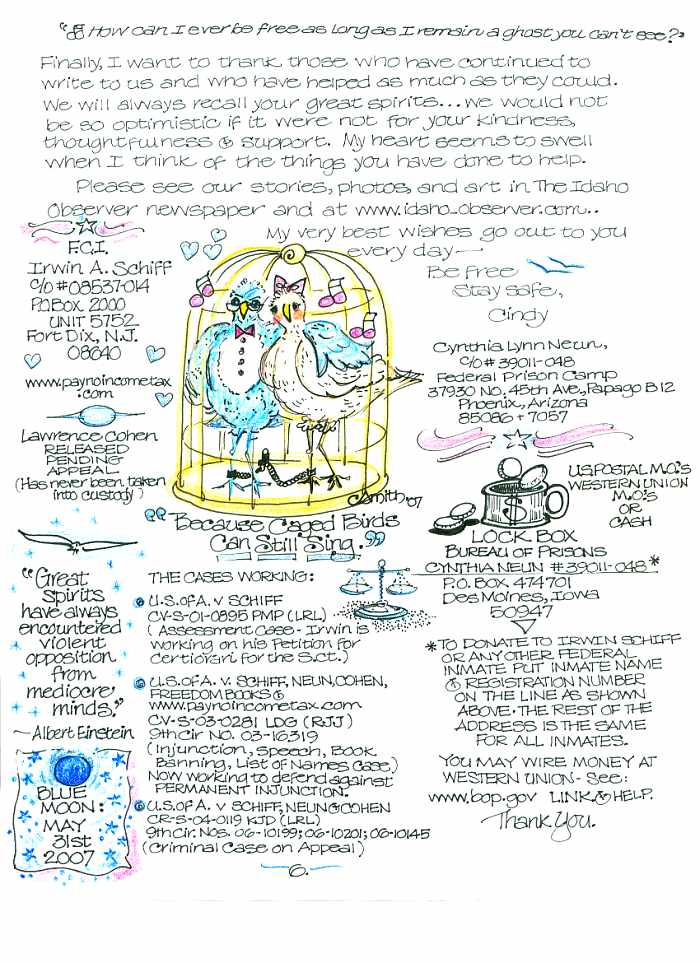 "How can I ever be free as long as I remain a ghost you can't see?"
Finally, I want to thank those who have continued to
write to us and who have helped as much as they could.
We will always recall your great spirits...we would not
be so optimistic if it were not for your kindness,
thoughtfulness & support. My heart seems to swell
when I think of the things you have done to help.
Please see our stories, photos, and art in The Idaho
Observer newspaper and at www.idaho-observer.com..
My very best wishes go out to you
every day—
Be free
Stay safe,
Cindy
F.C.I.
Irwin A. Schiff
C/O #08537-014
P.O. Box 2000
UNIT 5752
Fort Dix, N.J.
08640
www.paynoincometax
.com
Lawrence Cohen
RELEASED
PENDING
APPEAL
(Has never been taken
into custody)
Cynthia Lynn Neun,
C/O # 39011-048
Federal Prison Camp
37930 No. 45th Ave., Papago B12
Phoenix, Arizona
85086-7057
CSmith '07
"Because Caged Birds
Can Still Sing."
$
US POSTAL M.O.'s
WESTERN UNION
M.O.'s
OR
CASH
LOCK BOX
BUREAU OF PRISONS
CYNTHIA NEUN #39011-048*
P.O. BOX 474701
Des Moines, Iowa
50947
*TO DONATE TO IRWIN SCHIFF
OR ANY OTHER FEDERAL
INMATE PUT INMATE NAME
& REGISTRATION NUMBER
ON THE LINE AS SHOWN
ABOVE. THE REST OF THE
ADDRESS IS THE SAME
FOR ALL INMATES.
YOU MAY WIRE MONEY AT
WESTERN UNION - See:
www.bop.gov LINK & HELP.
Thank You.
"Great
spirits
have always
encountered
violent
opposition
from
mediocre
minds."
~Albert Einstein
BLUE
MOON:
MAY
31st
2007
THE CASES WORKING:
U.S. of A. v SCHIFF
CV-S-01-0895 PMP (LRL)
(Assessment Case - Irwin is
working on his Petition for
Certiorari for the S.Ct.)
U.S. of A. v. SCHIFF, NEUN, COHEN,
FREEDOM BOOKS &
www.paynoincometax.com
CV-S-03-0281 LDG (RJJ)
9th Cir No. 03-16319
(Injunction, Speech, Book
Banning, List of Names Case)
Now working to defend against
PERMANENT INJUNCTION.
U.S. of A. v SCHIFF, NEUN & COHEN
CR-S-04-0119 KJD (LRL)
9th Cir. Nos. 06-10199; 06-10201; 06-10145
(Criminal Case on Appeal)
6.